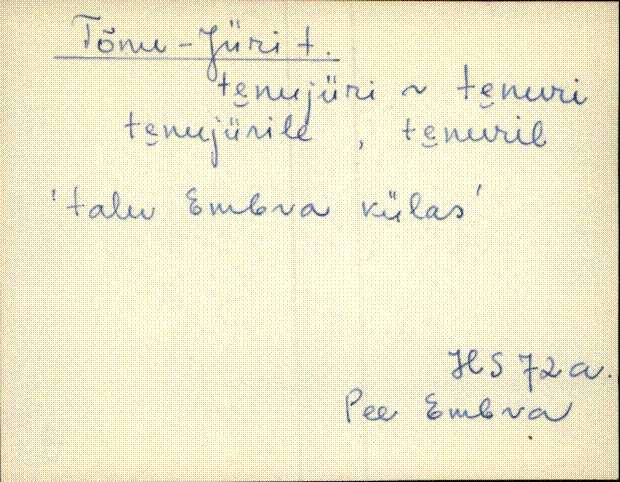 Tõnu-Jüri t.
te̮nujüri ~ te̮nuri
te̮nujürile, te̮nuril
'talu Embva külas'
HS 72 a.
Pee Embva